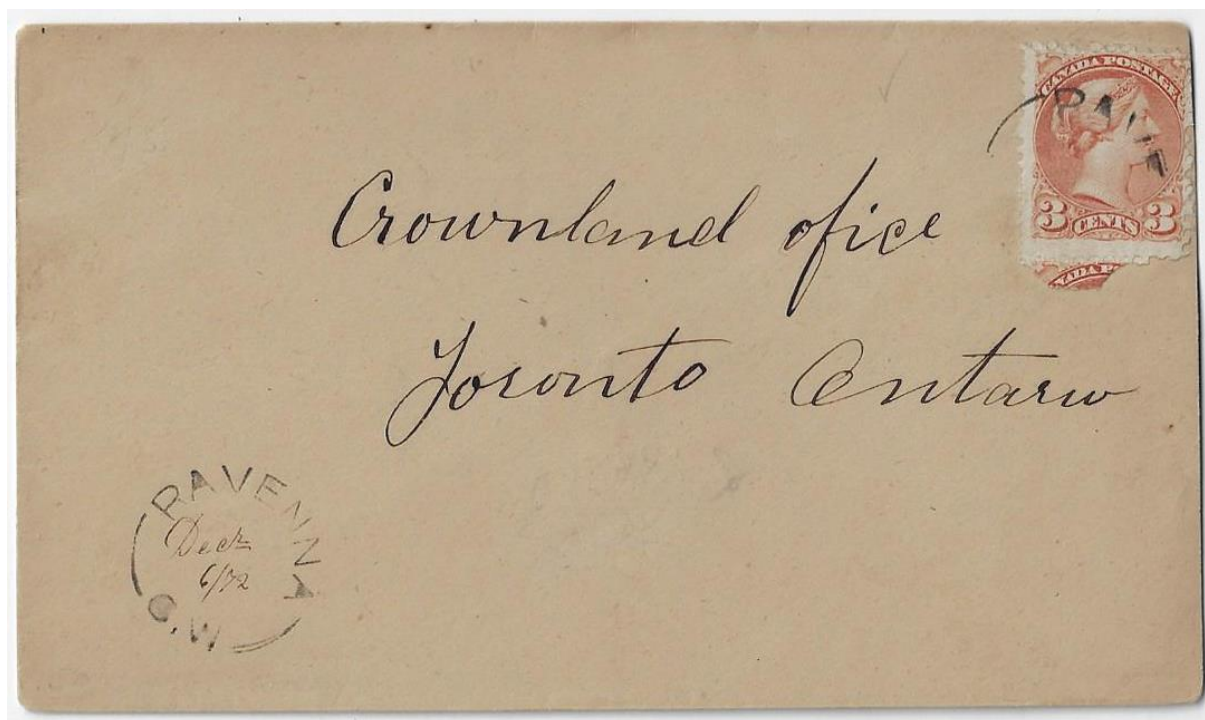 CANADA POSTAGE
RAVE
3 CENTS 3
NADA P
Crownland ofice
Toronto Ontario
RAVENNA
Decr
6/72
C.W